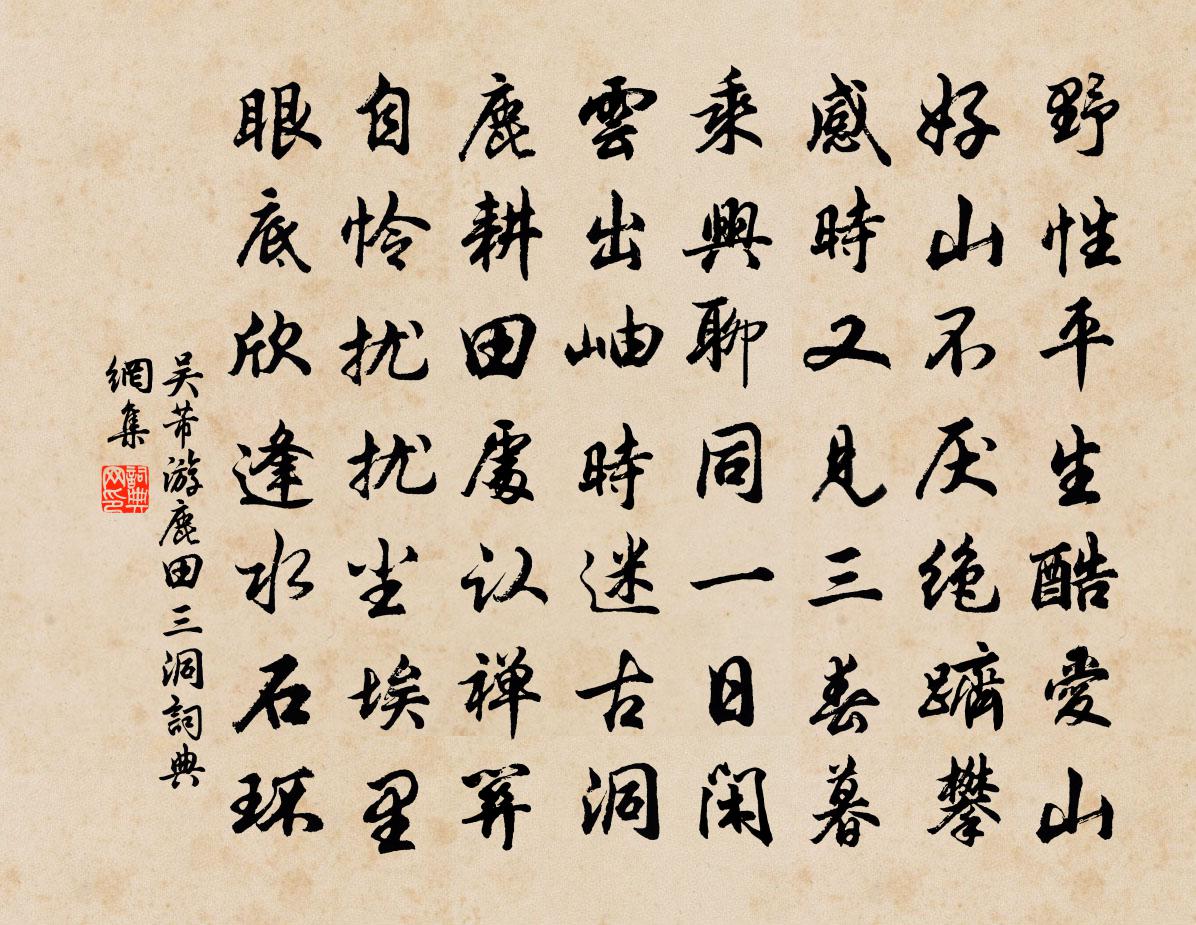 野性平生酷愛山
好山不厌绝躋攀
感時又見三春暮
乘興聊同一日闲
雲出岫時迷古洞
鹿耕田處认禅関
自怜扰扰尘埃里
眼底欣逢水石环
吴芾游鹿田三洞詞典
網集
詞典
网印